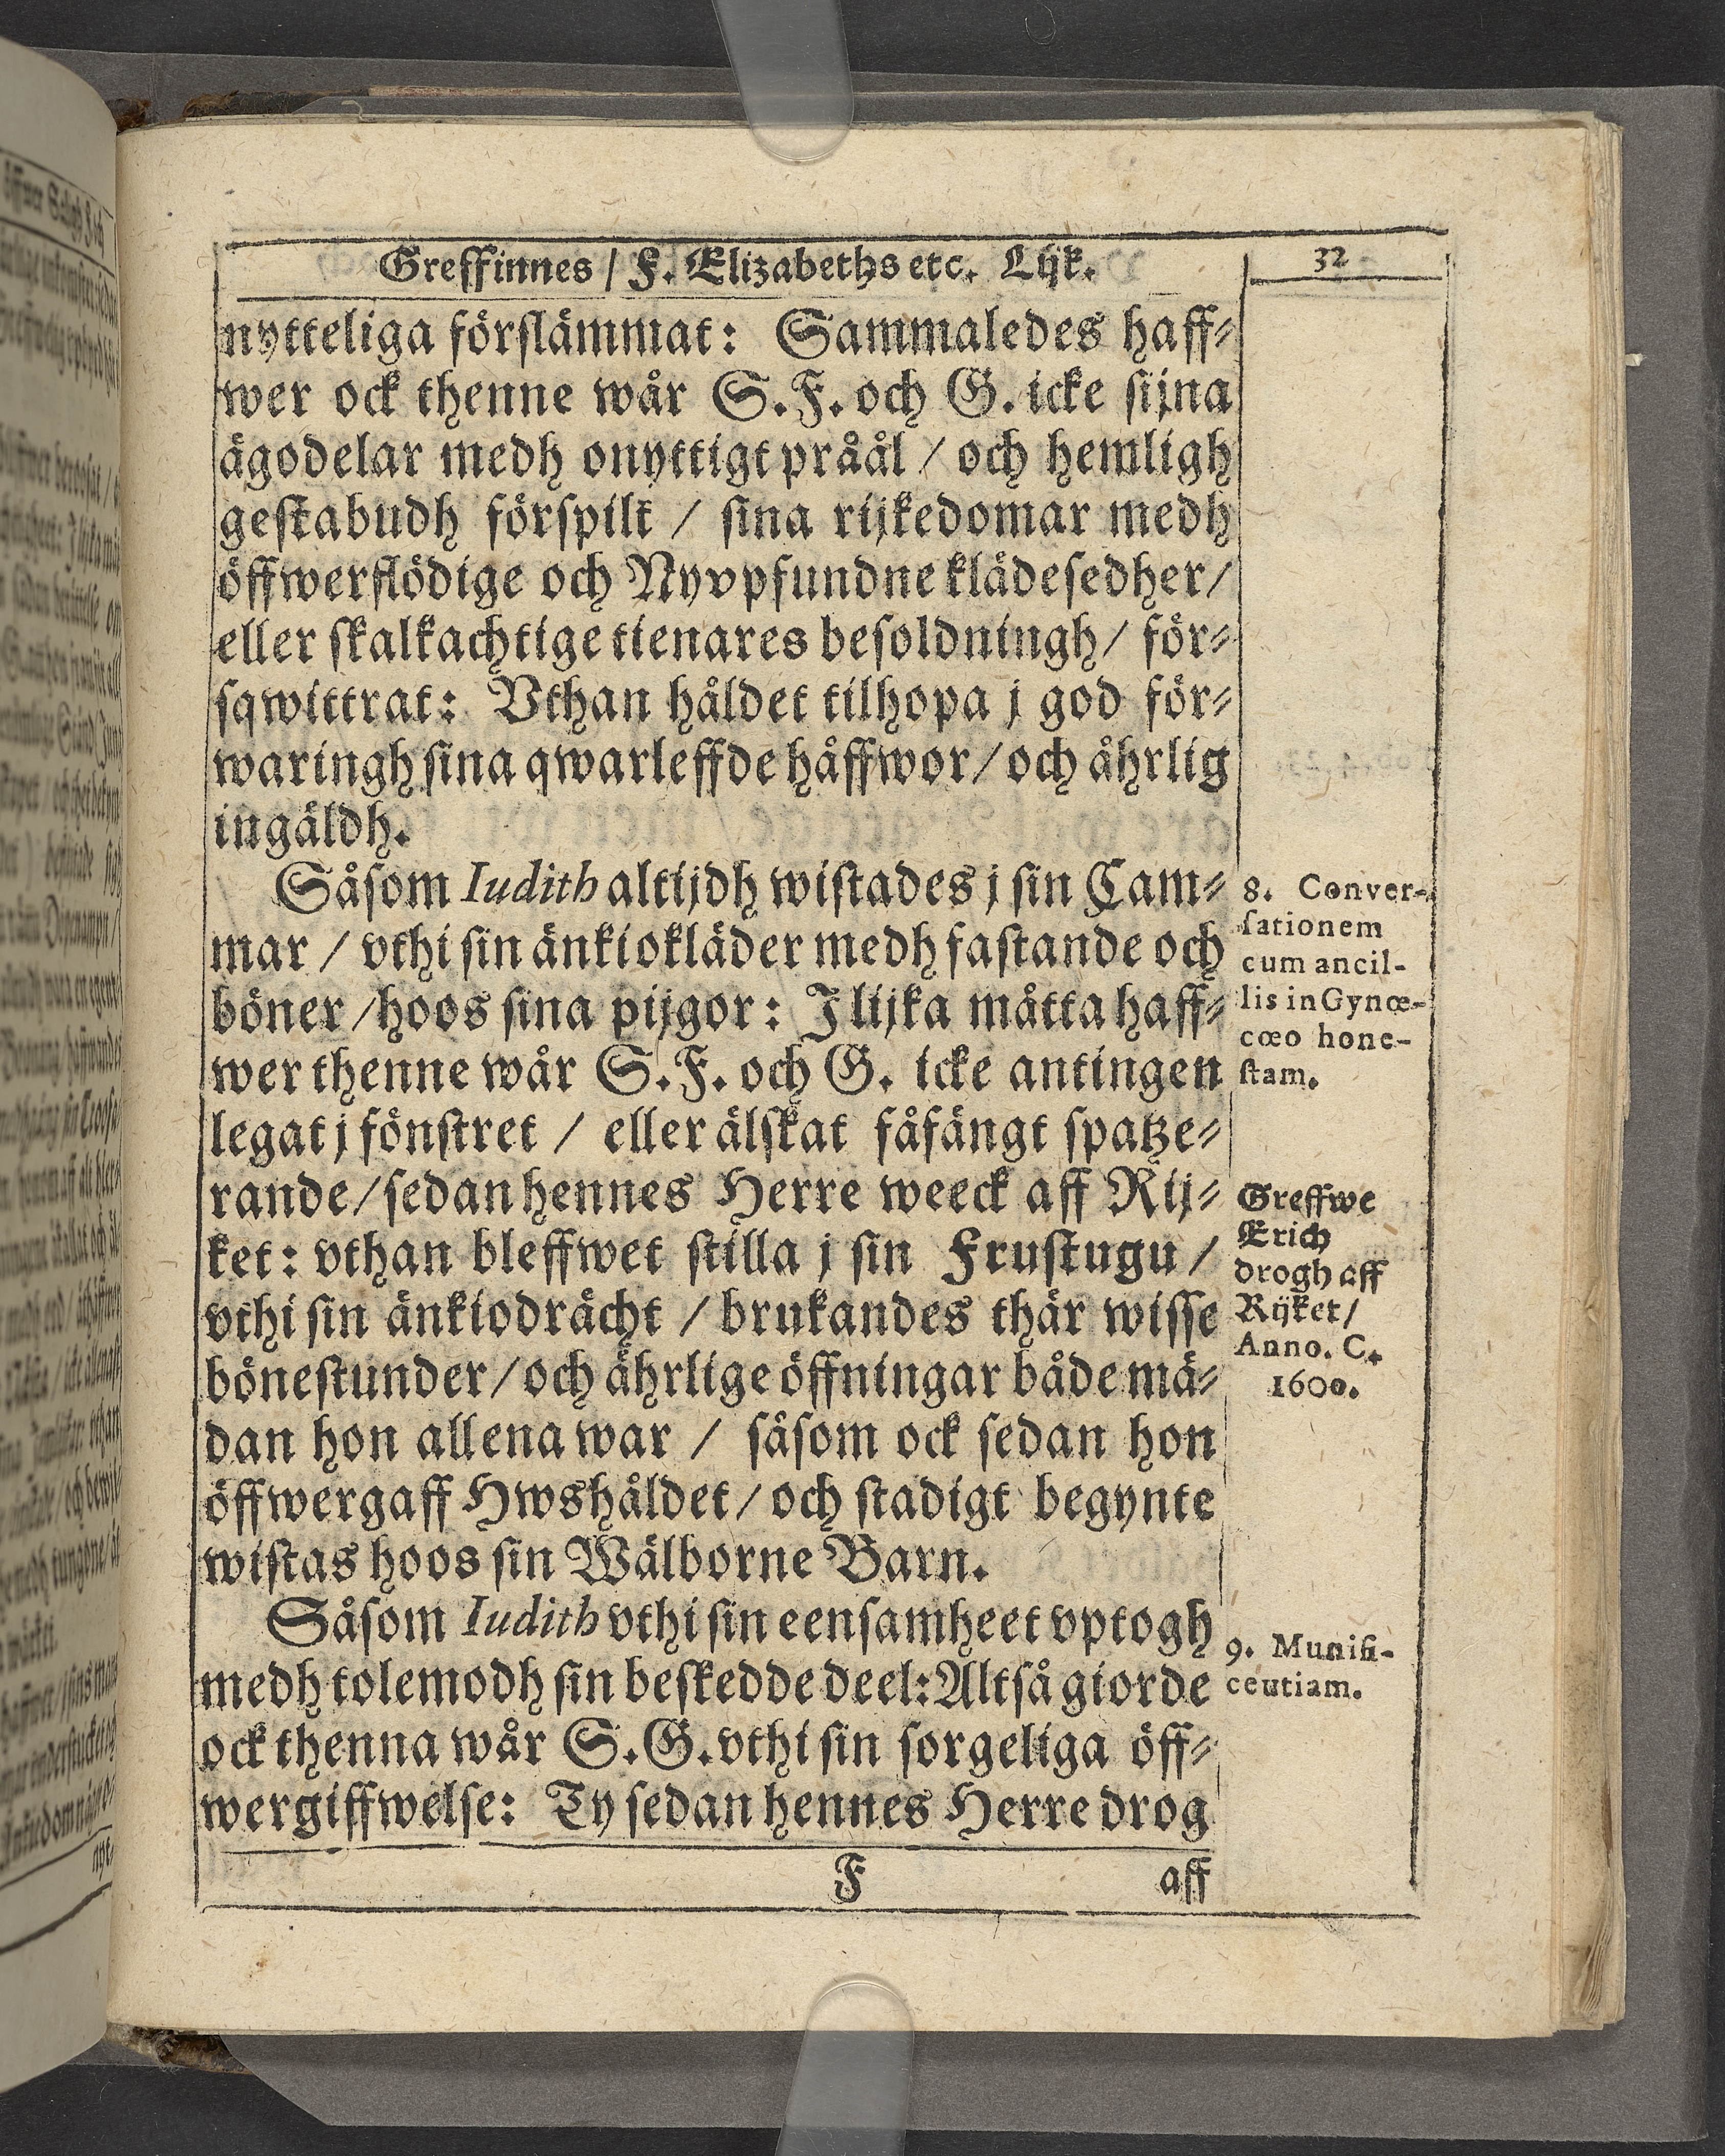 Greffinnes / F. Elizabeths etc. Lijk.
32
nytteliga förslämmat: Sammaledes haff-
wer ock thenne wår S. F. och G. icke sijna
ägodelar medh onyttigt pråål / och hemligh
gestabudh förspilt / sina rijkedomar medh
öffwerflödige och Nyvpfundne klädesedher /
eller skalkachtige tienares besoldningh / för-
sqwittrat: Vthan håldet tilhopa j god för-
waringh sina qwarleffde håffwor / och åhrlig
ingäldh.
Såsom Iudith altijdh wistades j sin Cam-
mar / vthi sin änkiokläder medh fastande och
böner / hoos sina pijgor: J lijka måtta haff-
wer thenne wår S. F. och G. icke antingen
legat j fönstret / eller älskat fåfängt spatze-
rande / sedan hennes Herre weeck aff Rij-
ket: vthan bleffwet stilla j sin Frustugu /
vthi sin änkiodrächt / brukandes thär wisse
bönestunder / och ährlige öffningar både mä-
dan hon allena war / såsom ock sedan hon
öffwergaff Hwshåldet / och stadigt begynte
wistas hoos sin Wälborne Barn.
Såsom Iudith vthi sin eensamheet vptogh
medh tolemodh sin beskedde deel: Altså giorde
ock thenna wår S. G. vthi sin sorgeliga öff-
wergiffwelse: Ty sedan hennes Herre drog
F
aff
8. Conver-
sationem
cum ancil-
lis in Gynœ-
cœo hone-
stam.
Greffwe
Erich
drogh aff
Rijket /
Anno. C.
1600.
9. Munifi-
centiam.